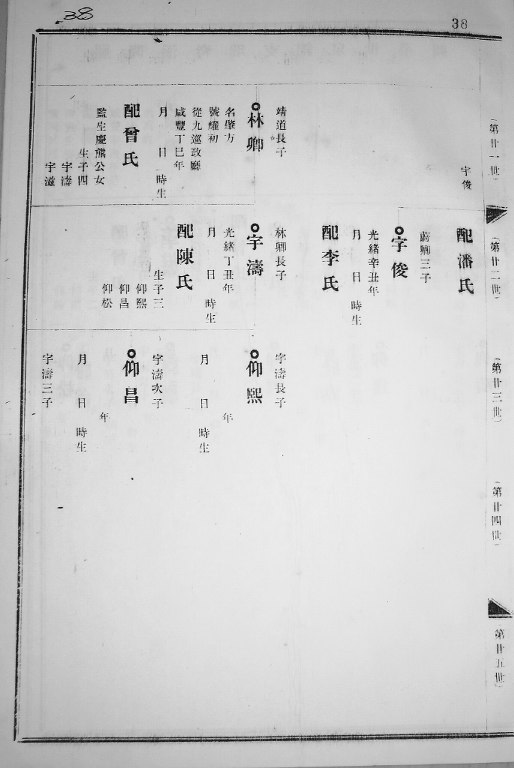 38
38
(第廿一世)
宇俊
靖道長子
林卿
名肇方
號耀初
從九巡政廳
咸豐丁巳年
月 日 時生
配曾氏
監生慶熊公女
生子四
宇濤
宇滋
(第廿二世)
配潘氏
蔚卿三子
宇俊
光緒辛丑年
月 日 時生
配李氏
林卿長子
宇濤
光緒丁丑年
月 日 時生
配陳氏
生子三
仰熙
仰昌
仰松
(第廿三世)
宇濤長子
仰熙
年
月 日 時生
宇濤次子
仰昌
年
月 日 時生
宇濤三子
(第廿四世)
(第廿五世)